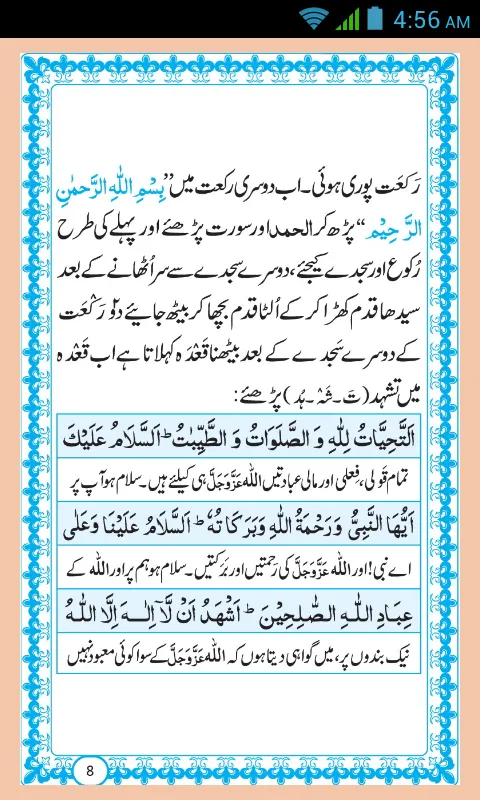 4:56 AM
رَکعَت پوری ہوئی۔ اب دوسری رکعت میں ”بِسْمِ اللّٰهِ الرَّحمٰنِ
الرَّحِیْم“ پڑھ کر الحمد اور سورت پڑھئے اور پہلے کی طرح
رُکوع اور سجدے کیجئے، دوسرے سجدے سے سر اُٹھانے کے بعد
سیدھا قدم کھڑا کر کے اُلٹا قدم بچھا کر بیٹھ جایئے دو رَکْعَت
کے دوسرے سَجدے کے بعد بیٹھنا قَعْدَہ کہلاتا ہے اب قَعْدہ
میں تشہد (تَ۔شَہْ۔ہُد) پڑھئے:
اَلتَّحِیَّاتُ لِلّٰهِ وَ الصَّلَوَاتُ وَ الطَّیِّبٰتُ ؕ اَلسَّلَامُ عَلَیْكَ
تمام قَولی، فِعلی اور مالی عبادتیں اللہ عَزَّوَجَلَّ ہی کیلئے ہیں۔ سلام ہو آپ پر
اَیُّهَا النَّبِیُّ وَرَحْمَةُ اللّٰهِ وَبَرَكَاتُهٗ ؕ اَلسَّلَامُ عَلَیْنَا وَعَلٰی
اے نبی! اور اللہ عَزَّوَجَلَّ کی رَحمتیں اور بَرَکتیں۔ سلام ہو ہم پر اور اللہ کے
عِبَادِ اللّٰهِ الصّٰلِحِیْنَ ؕ اَشْهَدُ اَنْ لَّاۤ اِلٰهَ اِلَّا اللّٰهُ
نیک بندوں پر، میں گواہی دیتا ہوں کہ اللہ عَزَّوَجَلَّ کے سوا کوئی معبود نہیں
8